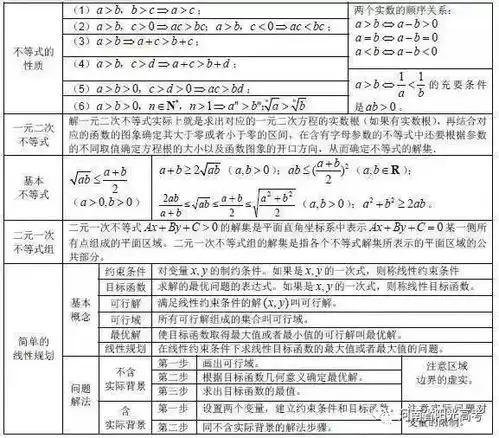 不等式的性质
(1) a>b, b>c⇒a>c;
(2) a>b, c>0⇒ac>bc; a>b, c<0⇒ac<bc;
(3) a>b⇒a+c>b+c;
(4) a>b, c>d⇒a+c>b+d;
(5) a>b>0, c>d>0⇒ac>bd;
(6) a>b>0, n∈N*, n>1⇒aⁿ>bⁿ; ⁿ√a>ⁿ√b
两个实数的顺序关系:
a>b⇔a-b>0
a=b⇔a-b=0
a<b⇔a-b<0
a>b⇔1/a<1/b 的充要条件
是ab>0.
一元二次不等式
解一元二次不等式实际上就是求出对应的一元二次方程的实数根(如果有实数根),再结合对
应的函数的图象确定其大于零或者小于零的区间,在含有字母参数的不等式中还要根据参数
的不同取值确定方程根的大小以及函数图象的开口方向,从而确定不等式的解集.
基本不等式
√ab≤(a+b)/2
(a>0,b>0)
a+b≥2√ab (a,b>0); ab≤((a+b)/2)² (a,b∈R);
2ab/(a+b)≤√ab≤(a+b)/2≤√((a²+b²)/2) (a,b>0); a²+b²≥2ab.
二元一次不等式组
二元一次不等式Ax+By+C>0的解集是平面直角坐标系中表示Ax+By+C=0某一侧所
有点组成的平面区域。二元一次不等式组的解集是指各个不等式解集所表示的平面区域的公
共部分。
简单的线性规划
基本概念
约束条件 对变量x,y的制约条件。如果是x,y的一次式,则称线性约束条件
目标函数 求解的最优问题的表达式。如果是x,y的一次式,则称线性目标函数。
可行解 满足线性约束条件的解(x,y)叫可行解。
可行域 所有可行解组成的集合叫可行域。
最优解 使目标函数取得最大值或者最小值的可行解叫最优解。
线性规划 在线性约束条件下求线性目标函数的最大值或者最小值的问题。
问题解法
不含实际背景
第一步 画出可行域。
第二步 根据目标函数几何意义确定最优解。
第三步 求出目标函数的最值。
注意区域边界的虚实。
含实际背景
第一步 设置两个变量,建立约束条件和目标函数
第二步 同不含实际背景的解法步骤。
变量的限制。